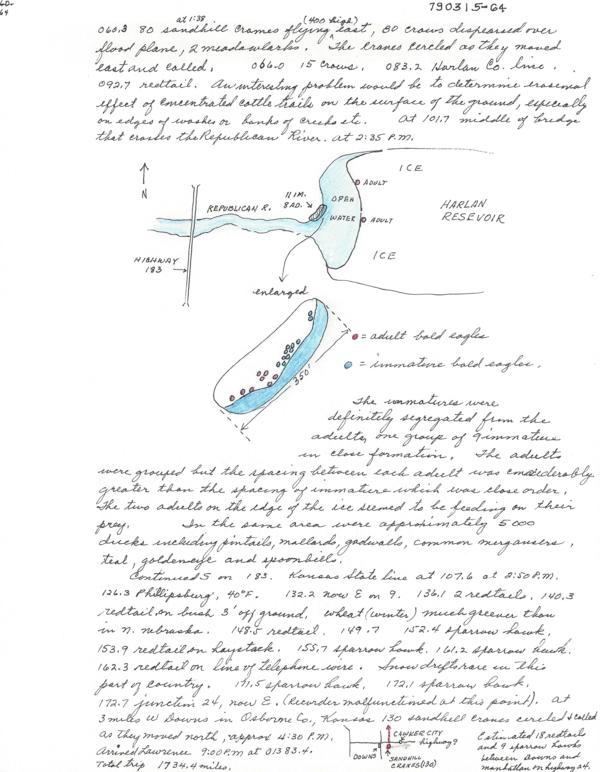 60-
64
790315-64
at 1:38 (400 high)
060.3 80 sandhill cranes flying east, 80 crows dispearsed over
flood plane, 2 meadowlarks. The cranes circled as they moved
east and called. 066.0 15 crows. 083.2 Harlan Co. line.
092.7 redtail. An interesting problem would be to determine erosional
effect of concentrated cattle trails on the surface of the ground, especially
on edges of washes or banks of creeks etc. At 101.7 middle of bridge
that crosses the Republican River. at 2:35 P.M.
N
ICE
ADULT
REPUBLICAN R.
11 IM.
8 AD.
OPEN
WATER
ADULT
HARLAN
RESEVOIR
ICE
HIGHWAY
183
enlarged
= adult bald eagles
= immature bald eagles.
350'
The immatures were
definitely segregated from the
adults, one group of 9 immature
in close formation. The adults
were grouped but the spacing between each adult was considerably
greater than the spacing of immature which was close order.
The two adults on the edge of the ice seemed to be feeding on their
prey. In the same area were approximately 5000
ducks including pintails, mallards, gadwalls, common mergansers,
teal, goldeneye and spoonbills.
Continued S on 183. Kansas State line at 107.6 at 2:50 P.M.
126.3 Phillipsburg, 40°F. 132.2 now E on 9. 136.1 2 redtails. 140.3
redtail on bush 3' off ground. Wheat (winter) much greener than
in N. Nebraska. 148.5 redtail. 149.7 152.4 sparrow hawk.
153.9 redtail on haystack. 155.7 sparrow hawk. 161.2 sparrow hawk.
162.3 redtail on line of telephone wire. Snow drifts rare in this
part of country. 171.5 sparrow hawk. 172.1 sparrow hawk.
172.7 junction 24, now E. (Recorder malfunctioned at this point). At
3 miles W Downs in Osborne Co., Kansas 130 sandhill cranes circled & called
as they moved north, approx 4:30 P.M.
Arrived Lawrence 9:00 P.M. at 01383.4.
Total trip 1734.4 miles.
CAWKER CITY
highway 9
DOWNS
SANDHILL
CRANES (130)
Estimated 18 redtails
and 9 sparrow hawks
between Downs and
Manhattan on highway 24.